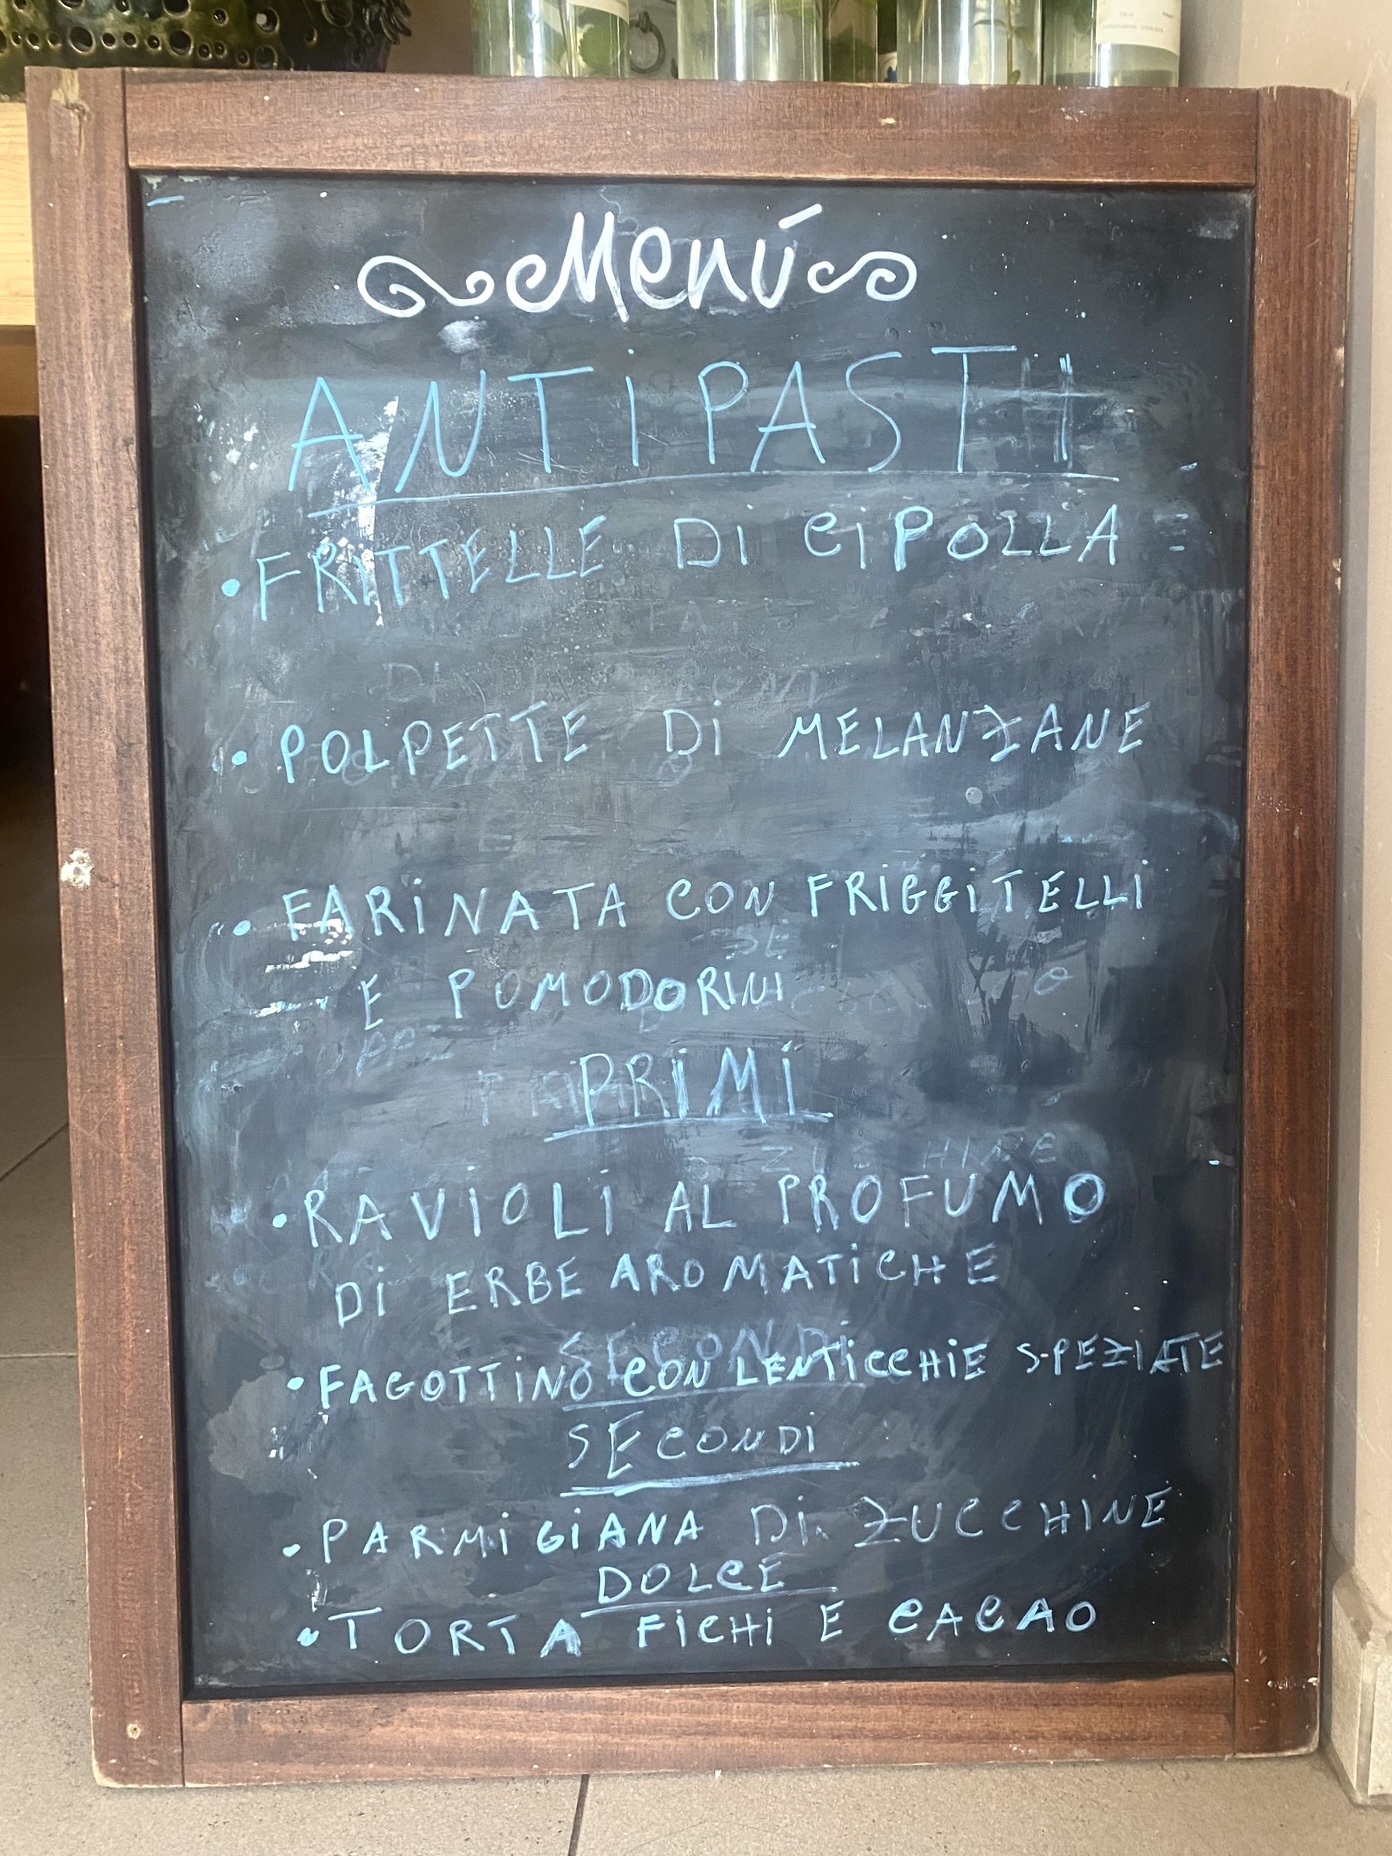 Menú
ANTIPASTI
• FRITTELLE Di CiPOLLA
• POLPETTE Di MELANZANE
• FARiNATA CON FRiGGiTELLi
E POMODORINI
PRiMi
• RAViOLi AL PROFUMO
Di ERBE AROMATiCHE
• FAGOTTiNO CON LENTiCCHiE SPEZiATE
SECONDi
• PARMiGiANA Di ZUCCHiNE
DOLCE
• TORTA FiCHi E CACAO